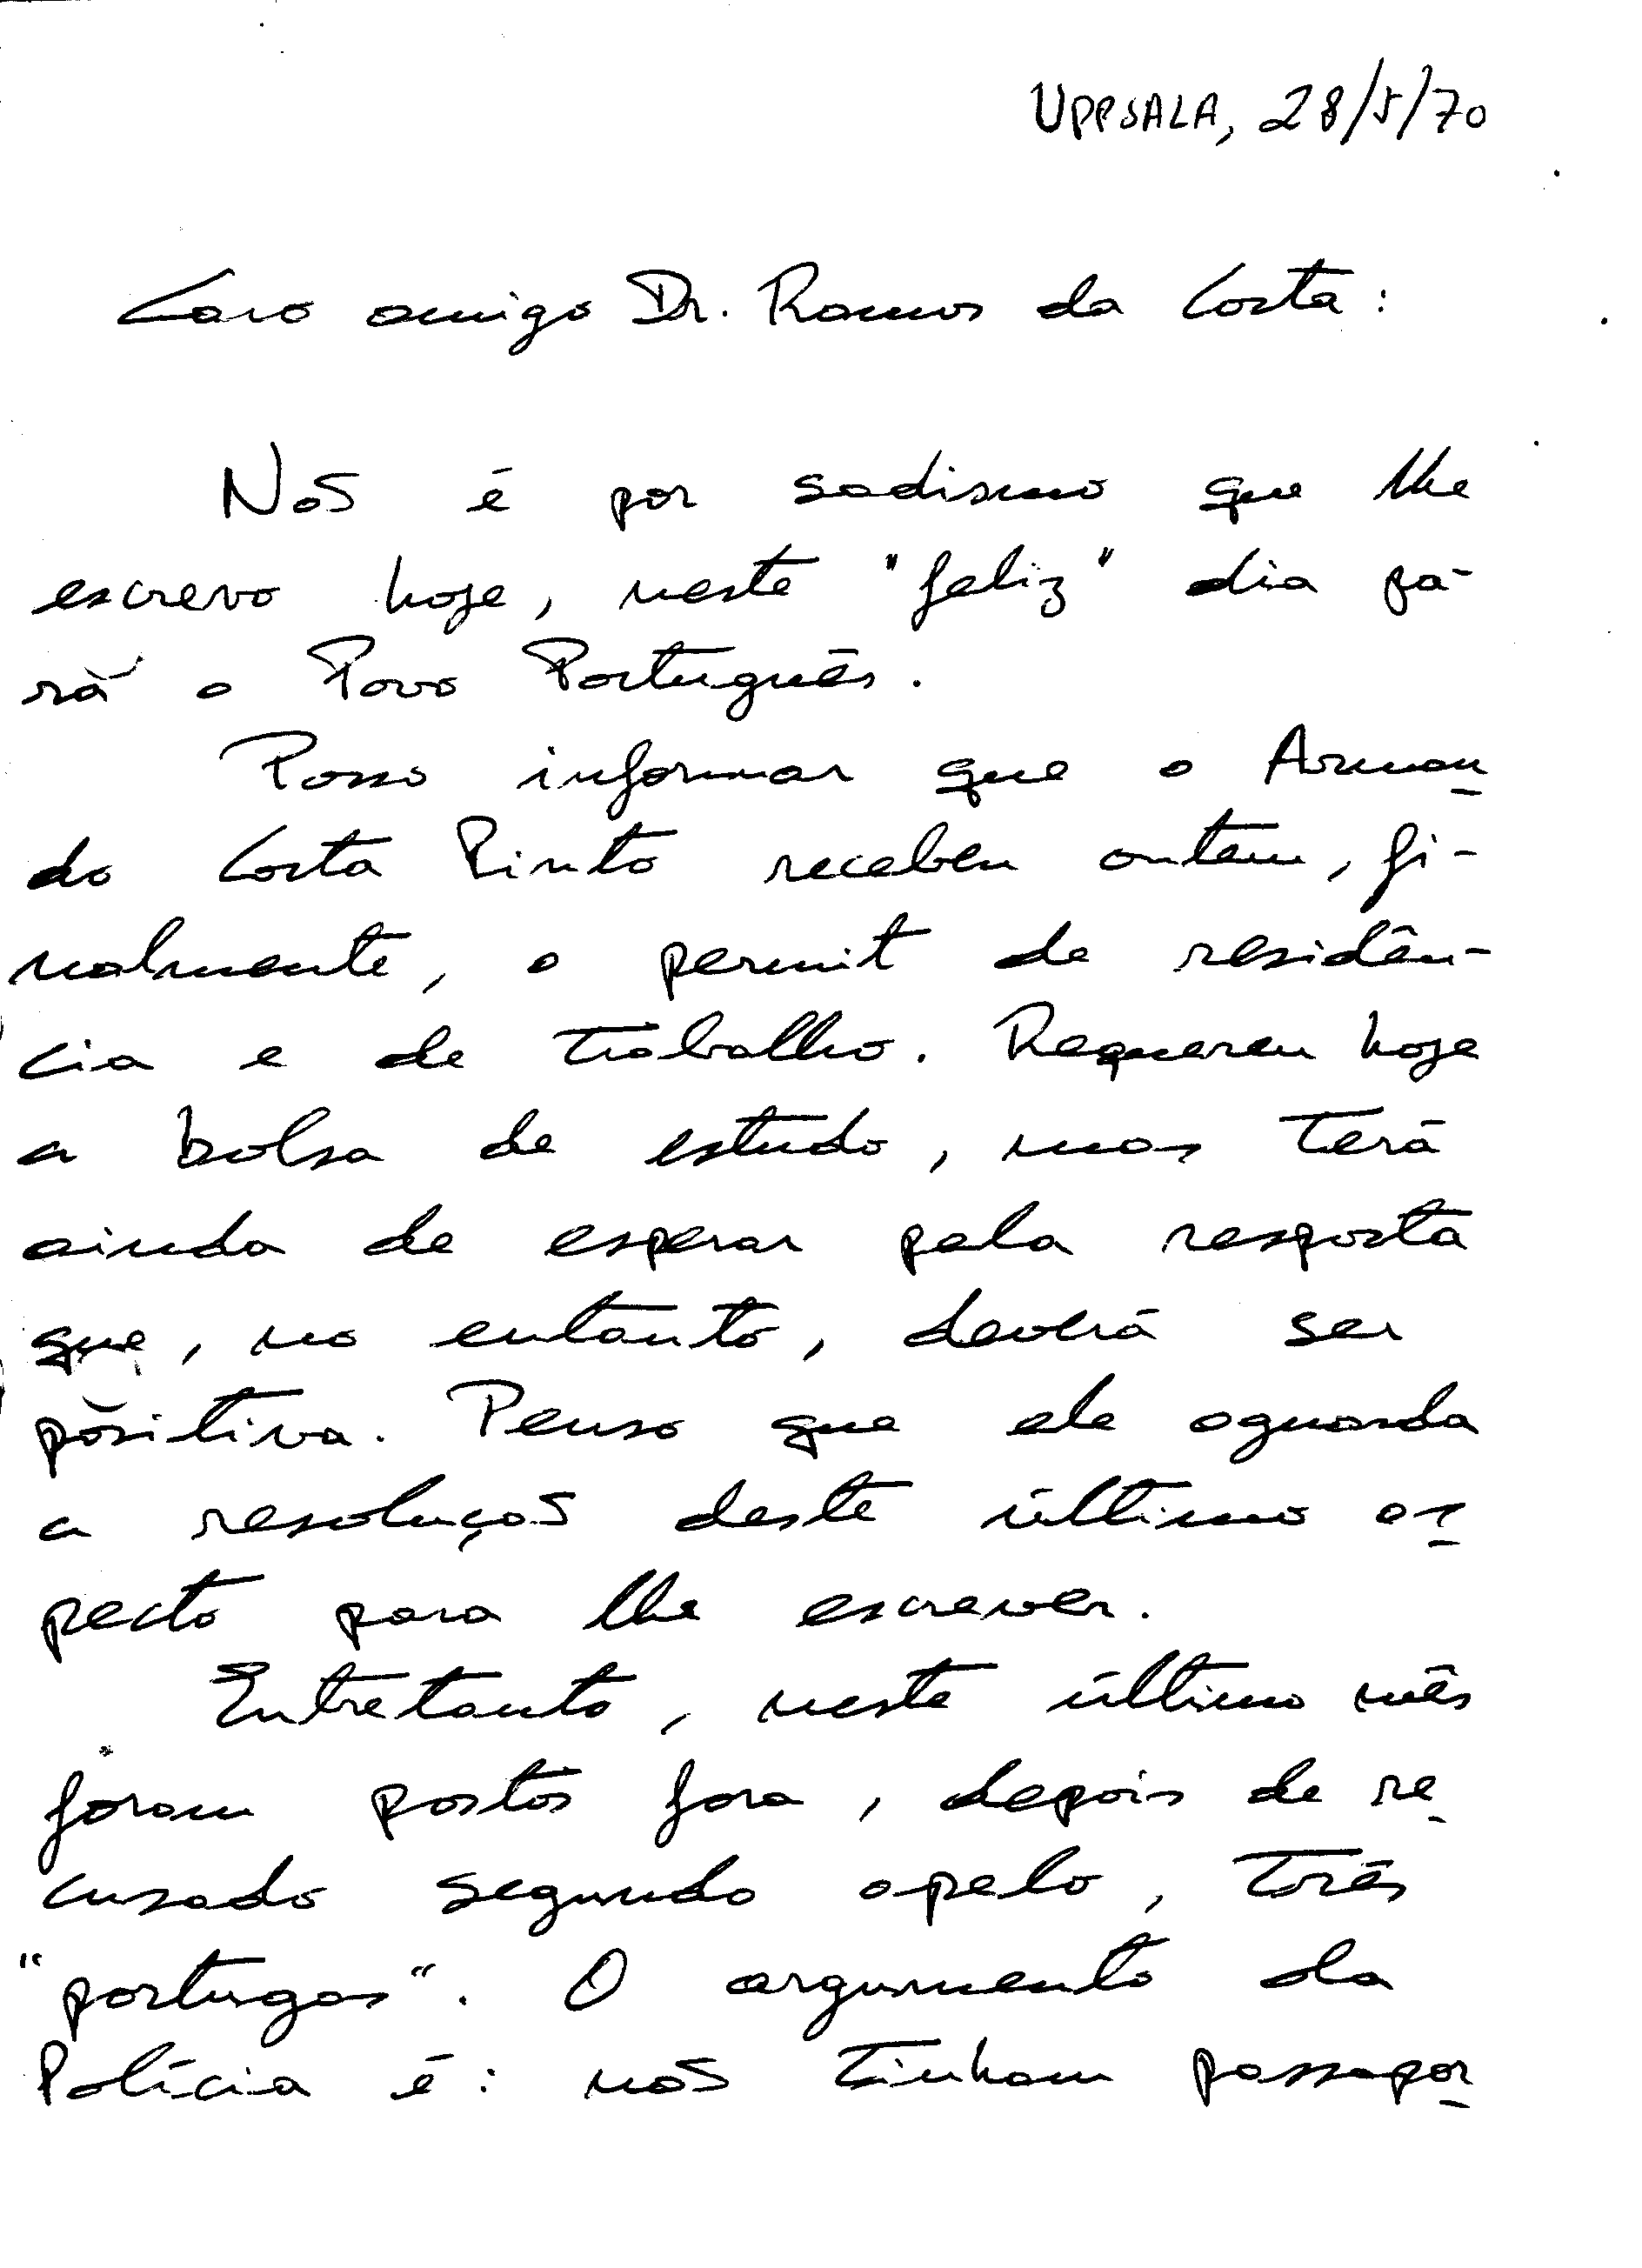 UPPSALA, 28/5/70
Caro amigo Dr. Ramos da Costa:
Não é por sadismo que lhe
escrevo hoje, neste "feliz" dia pa-
ra o Povo Português.
Posso informar que o Arman
do Costa Pinto recebeu ontem, fi-
nalmente, o permit de residên-
cia e de trabalho. Requereu hoje
a bolsa de estudo, mas terá
ainda de esperar pela resposta
que, no entanto, deverá ser
positiva. Penso que ele aguarda
a resolução deste último as
pecto para lhe escrever.
Entretanto, neste último mês
foram postos fora, depois de re
cusado segundo apelo, três
"portugas". O argumento da
Polícia é: não tinham passapor